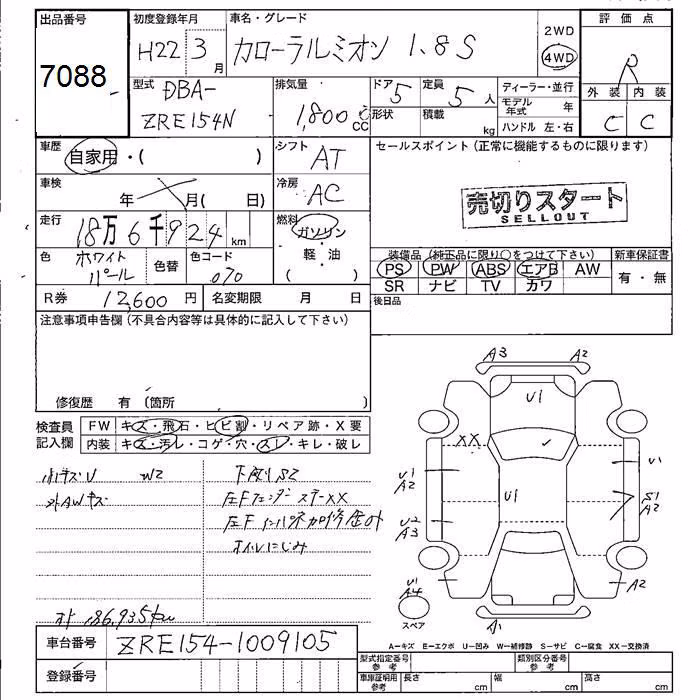 出品番号 初度登録年月 車名・グレード 評価点
7088 H22 3月 カローラルミオン 1.8S 2WD 4WD R
型式 排気量 ドア 定員 ディーラー・並行 外装 内装
DBA- 5 5人 モデル年式 年
ZRE154N 1,800cc 形状 積載 kg ハンドル 左・右 C C
車歴 自家用・( ) シフト AT セールスポイント(正常に機能するものに限ります)
車検 年 月( 日) 冷房 AC 売切りスタート
SELLOUT
走行 18万6千924km 燃料 ガソリン
軽・油
( )
色 ホワイトパール 色替 色コード 070
装備品(純正品に限り○をつけて下さい) 新車保証書
PS PW ABS エアB AW 有・無
SR ナビ TV カワ
R券 12,600円 名変期限 月 日 後日品
注意事項申告欄(不具合内容等は具体的に記入して下さい)
修復歴 有 (箇所 )
検査員記入欄 FW キズ・飛石・ヒビ割・リペア跡・X要
内装 キズ・汚レ・コゲ・穴・スレ・キレ・破レ
A3 A2
U1
XX
U1 A2 U1 U1 S1 A2
U2 A3
U1 A4 A2
スペア
A1
W2 下廻りS2
外AWキズ 左Fフェンダーステー XX
オイルにじみ
186,935km
車台番号 ZRE154-1009105
登録番号
A−キズ E−エクボ U−凹み W−補修跡 S−サビ C−腐食 XX−交換済
型式指定番号 参考 類別区分番号 参考
車庫証明用 参考 長さ cm 幅 cm 高さ cm